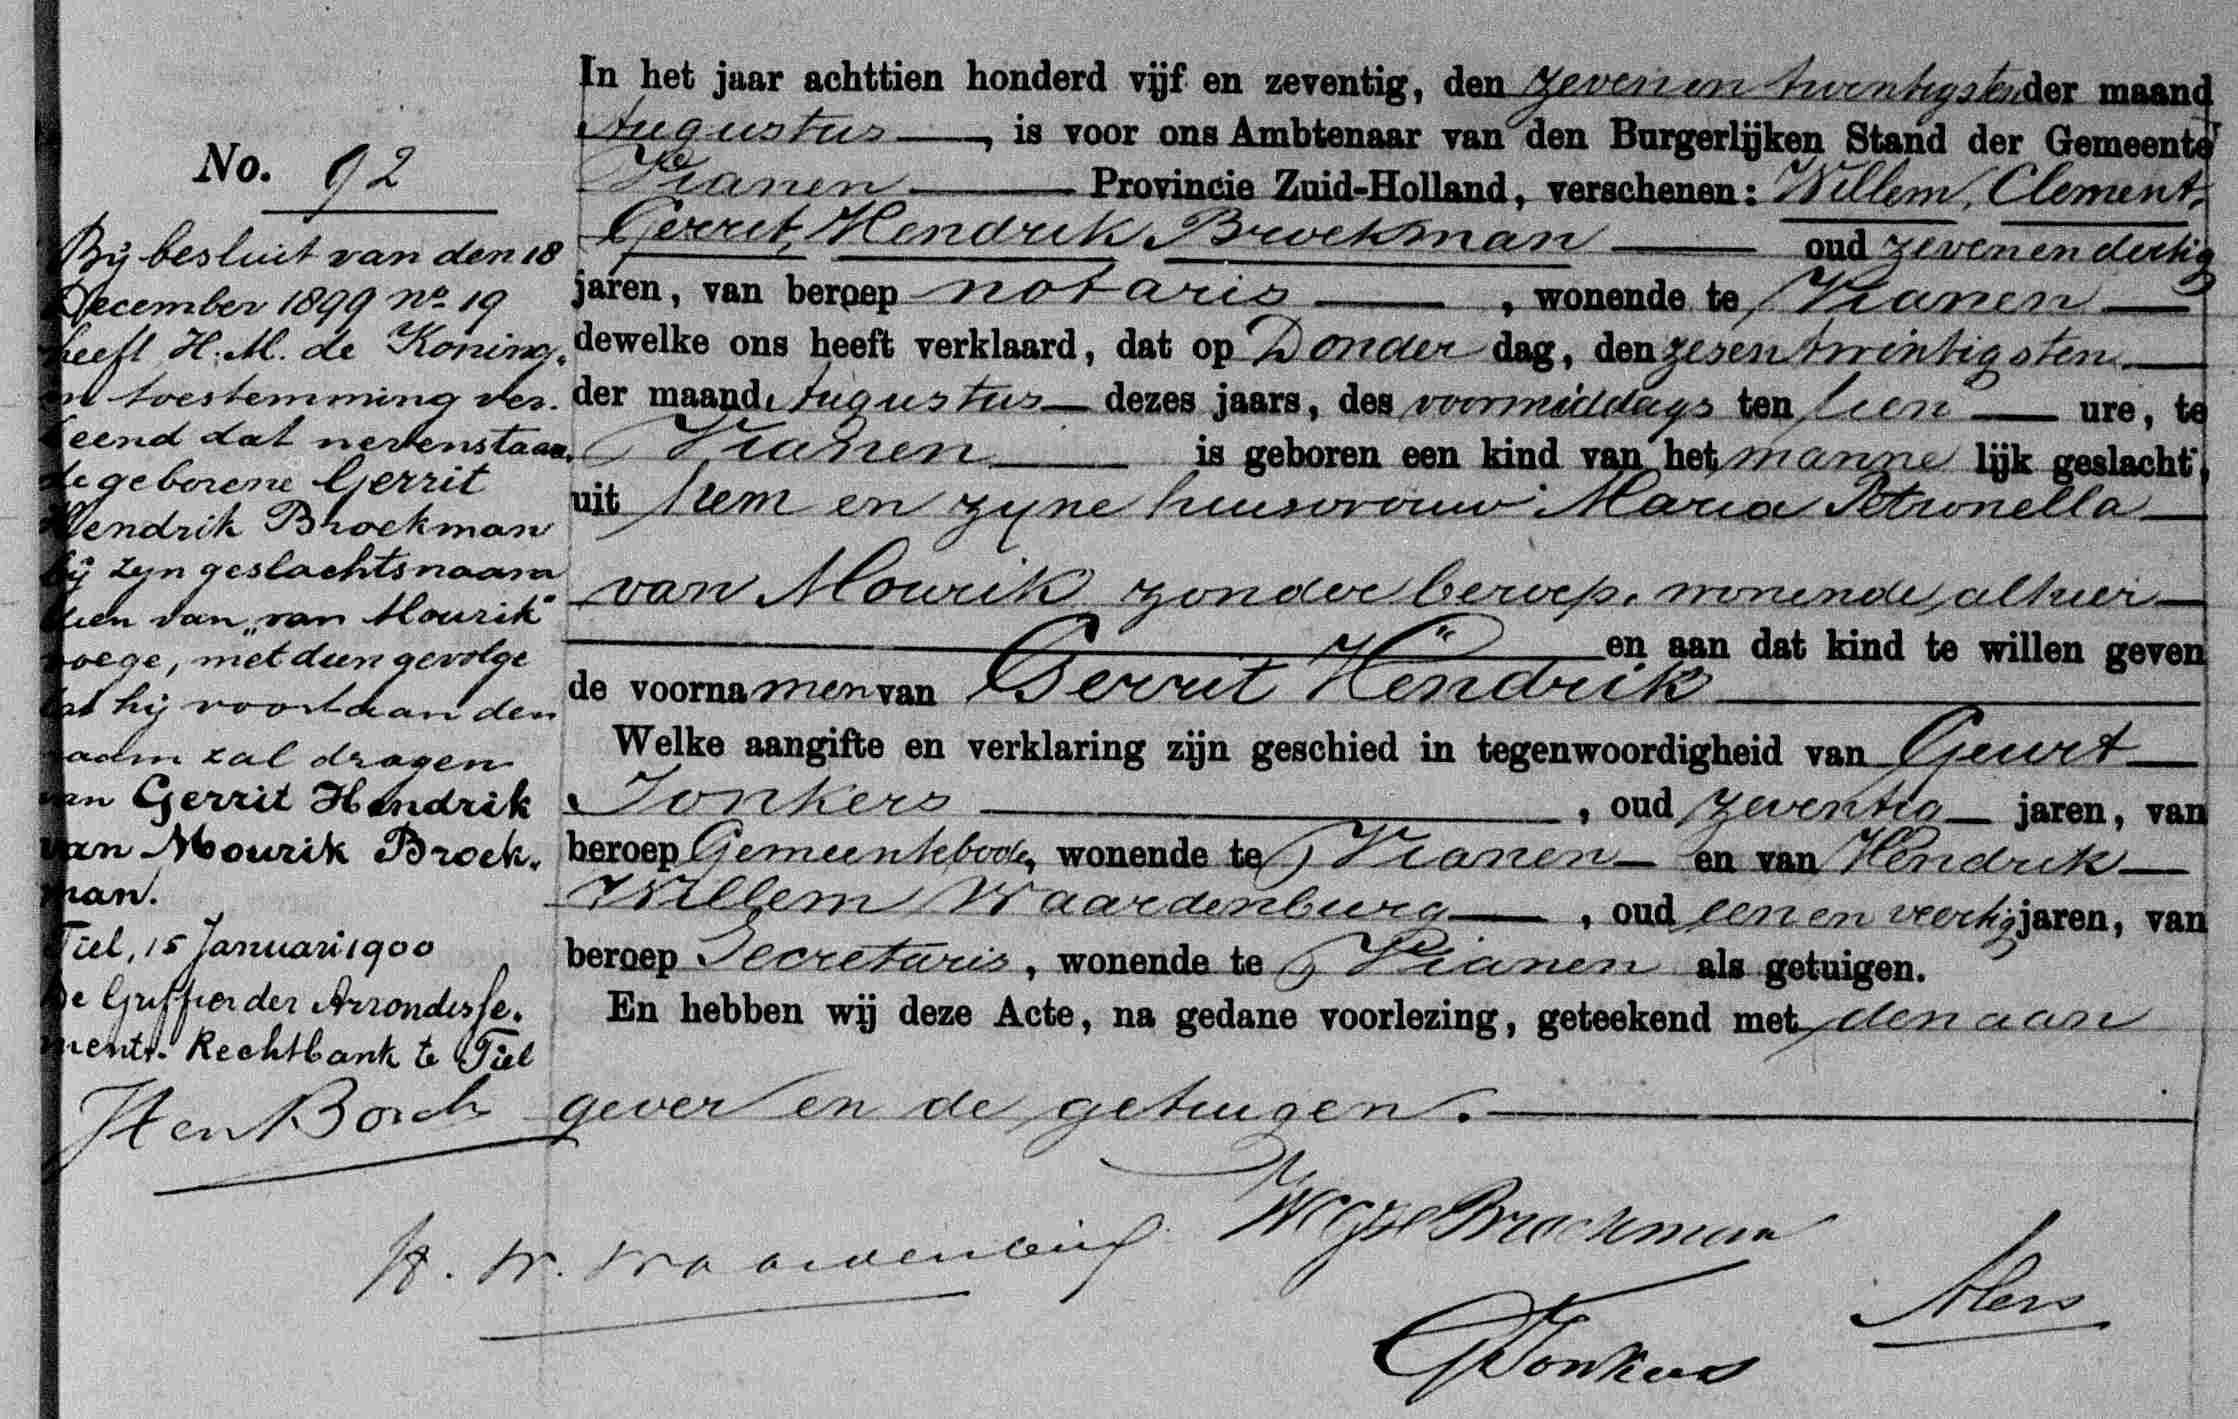 No. 92
Bij besluit van den 18
December 1899 no 19
heeft H. M. de Koning.
in toestemming ver.
leend dat nevenstaan.
de geborene Gerrit
Hendrik Broekman
bij zijn geslachtsnaam
dien van „van Mourik"
voege, met dien gevolge
dat hij voortaan den
naam zal dragen
van Gerrit Hendrik
van Mourik Broek.
man.
Tiel, 15 Januari 1900
De Griffier der Arrondisse.
ments. Rechtbank te Tiel
In het jaar achttien honderd vijf en zeventig, den zeven en twintigsten der maand
Augustus, is voor ons Ambtenaar van den Burgerlijken Stand der Gemeente
Vianen Provincie Zuid-Holland, verschenen: Willem, Clement,
Gerrit, Hendrik Broekman oud zeven en dertig
jaren, van beroep notaris, wonende te Vianen
dewelke ons heeft verklaard, dat op Donder dag, den zesentwintigsten
der maand Augustus dezes jaars, des voormiddags ten tien ure, te
Vianen is geboren een kind van het manne lijk geslacht,
uit hem en zijne huisvrouw Maria Petronella
van Mourik zonder beroep, wonende alhier
en aan dat kind te willen geven
de voornamen van Gerrit Hendrik
Welke aangifte en verklaring zijn geschied in tegenwoordigheid van Geurt
Jonkers, oud zeventig jaren, van
beroep Gemeentebode, wonende te Vianen en van Hendrik
Willem Waardenburg, oud een en veertig jaren, van
beroep Secretaris, wonende te Vianen als getuigen.
En hebben wij deze Acte, na gedane voorlezing, geteekend met den aan
gever en de getuigen.
WCGH Broekman
H. W. Waardenburg
G Jonkers